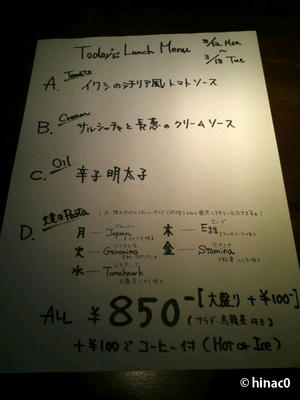 Today's Lunch Menu
3/12 Mon
～
3/13 Tue
A. Tomato
イワシのシチリア風トマトソース
B. Cream
サルシッチャと長葱のクリームソース
C. Oil
辛子明太子
D. 焼きPasta
月 ― Japan
火 ― Geronimo
水 ― Tomahawk
木 ― Egg
金 ― Stamina
ALL ¥850-[大盛り +¥100-]
(サラダ・烏龍茶付き)
+¥100でコーヒー付 (Hot or Ice)
© hinac0